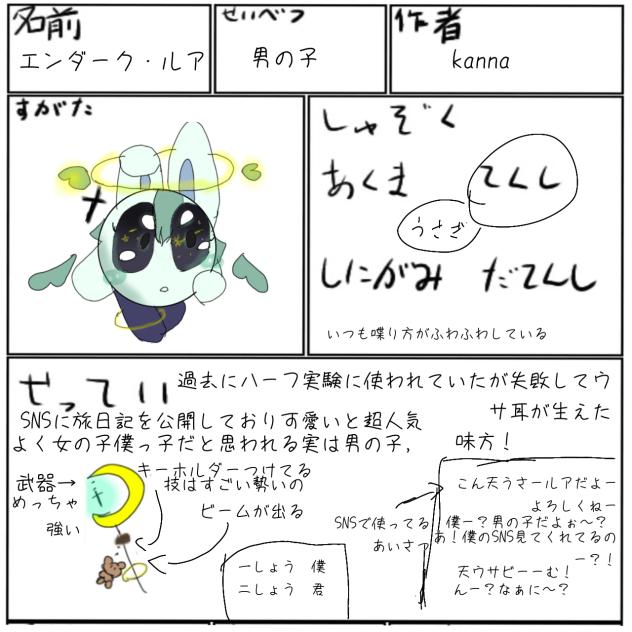 名前
エンダーク・ルア
せいべつ
男の子
作者
kanna
すがた
しゅぞく
あくま
てんし
うさぎ
しにがみ
だてんし
いつも喋り方がふわふわしている
せってい
過去にハーフ実験に使われていたが失敗してウ
サ耳が生えた
SNSに旅日記を公開しており可愛いと超人気
よく女の子僕っ子だと思われる実は男の子,
味方！
武器→
めっちゃ
強い
キーホルダーつけてる
技はすごい勢いの
ビームが出る
一しょう 僕
二しょう 君
SNSで使ってる
あいさつ
こん天うさールアだよー
よろしくねー
僕ー？男の子だよぉ～？
あ！僕のSNS見てくれてるの
ー？！
天ウサビーーむ！
んー？なぁに～？